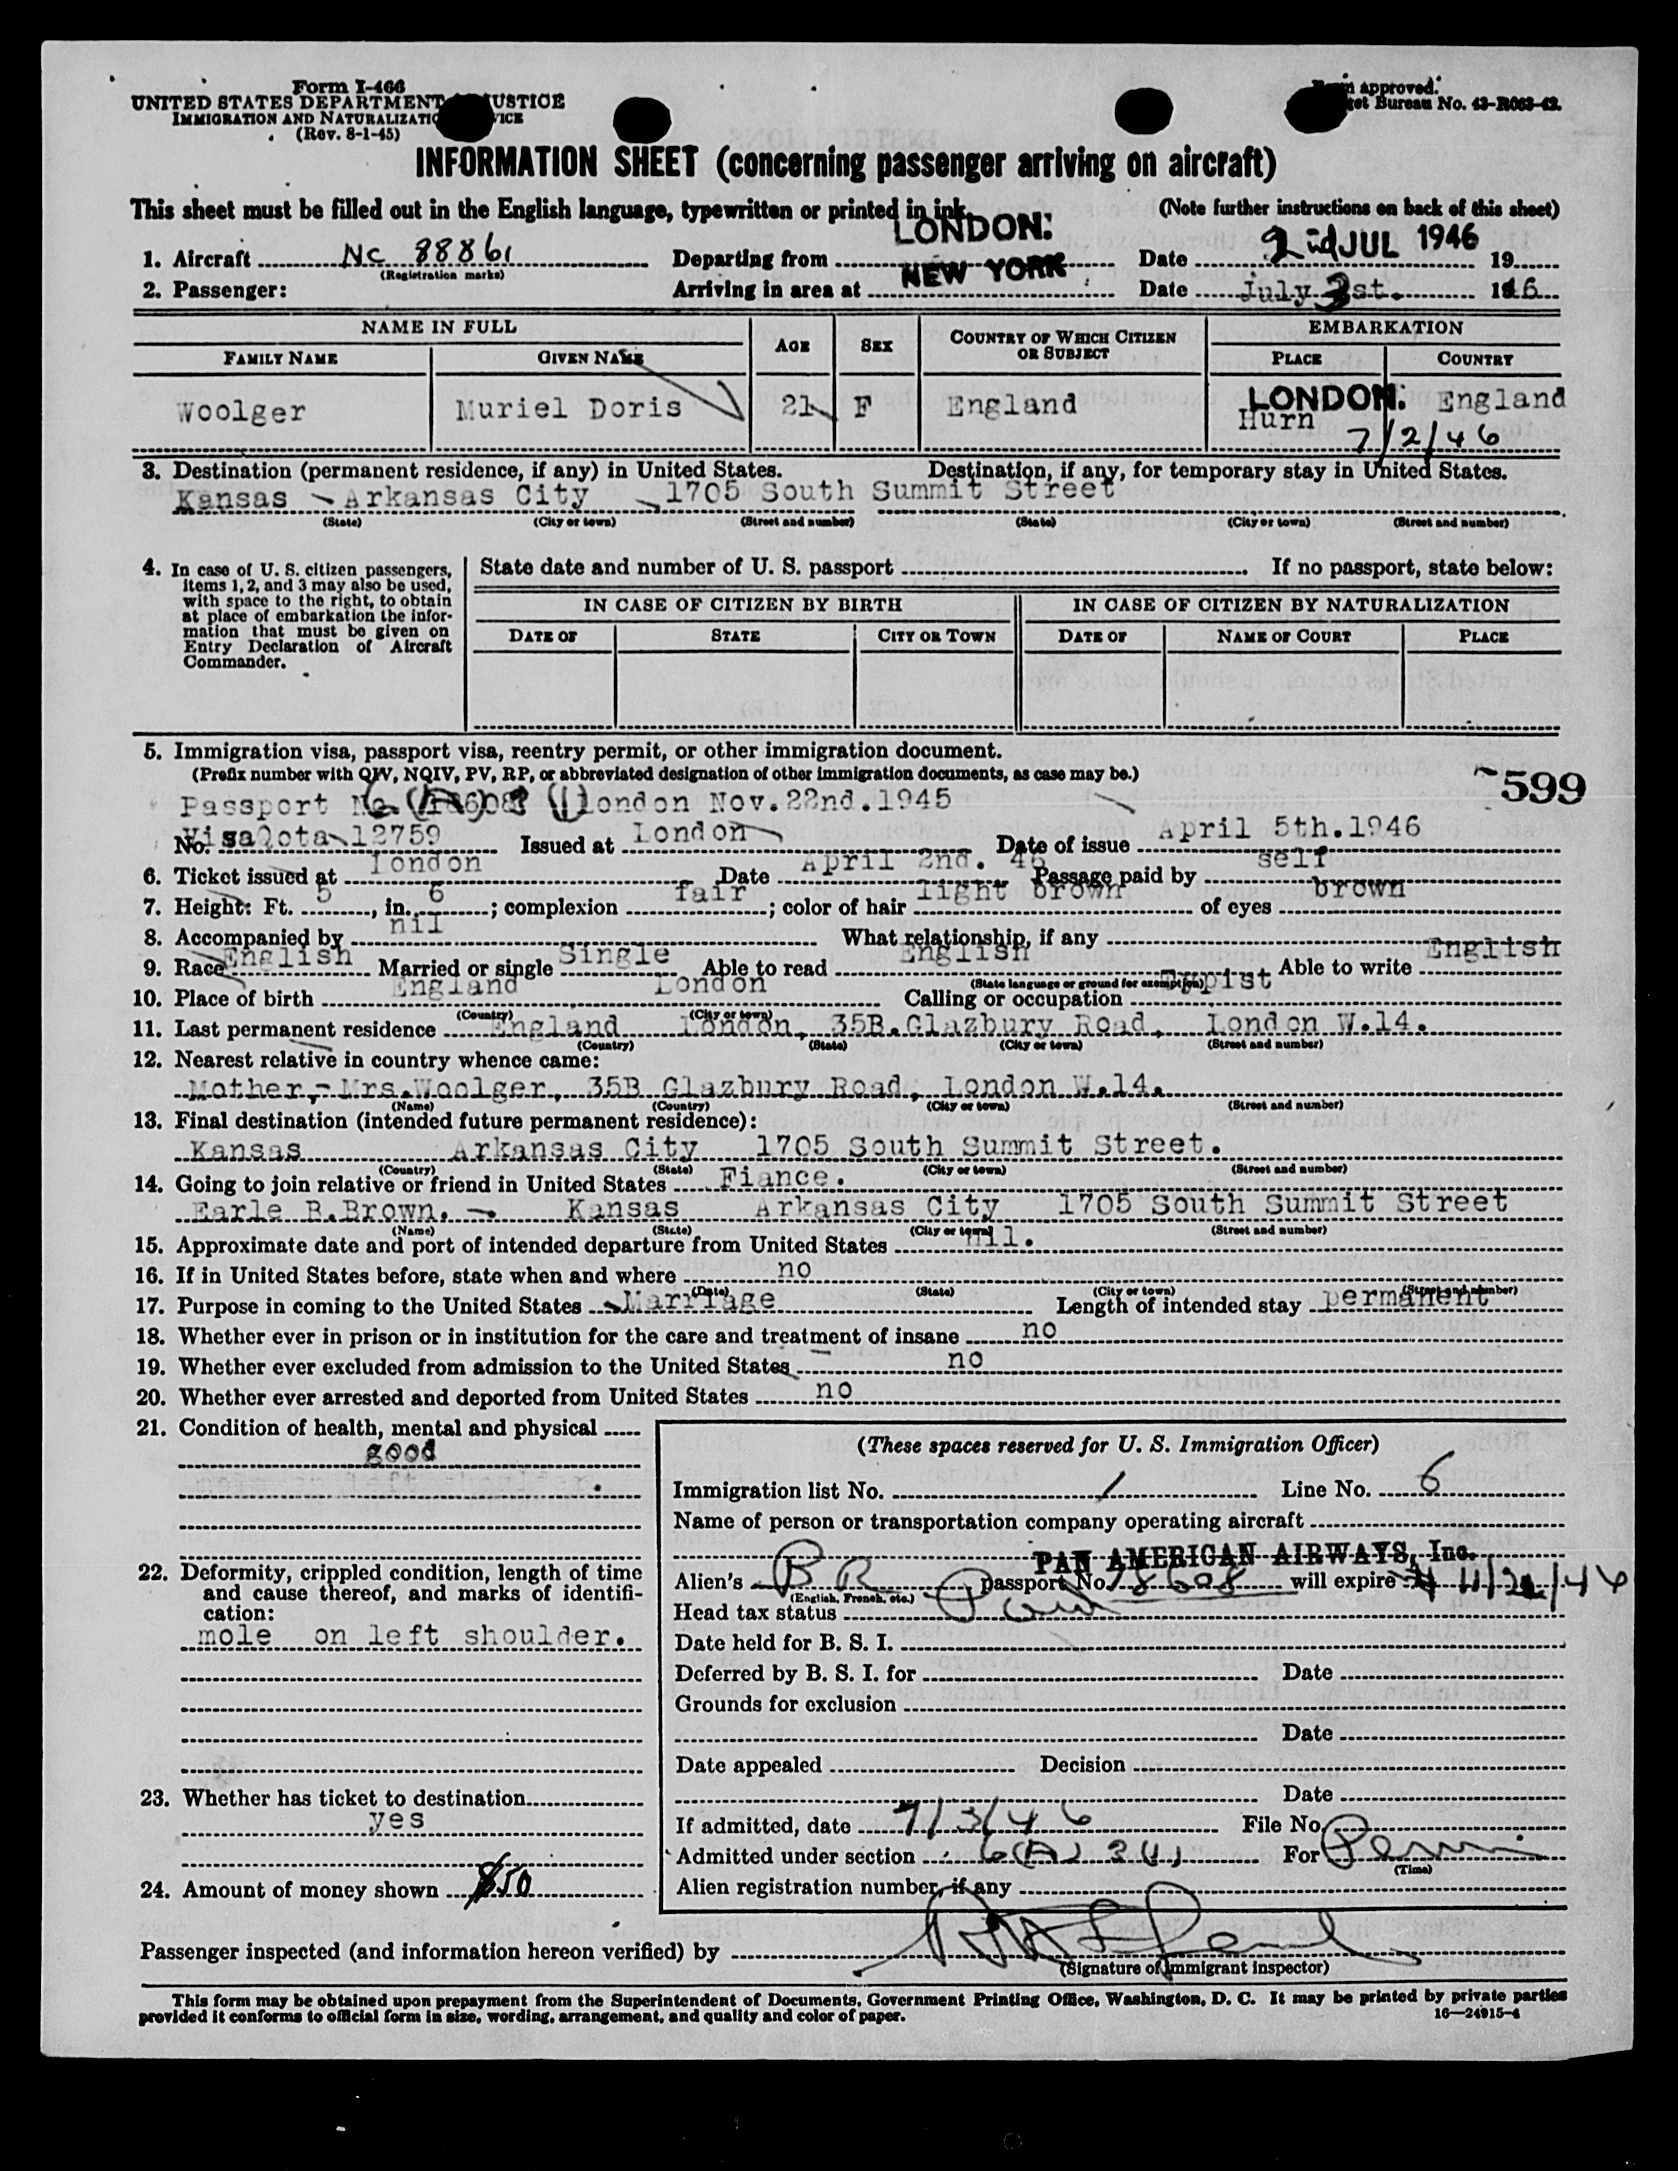 Form I-466
UNITED STATES DEPARTMENT USTICE
IMMIGRATION AND NATURALIZATIO VICE
(Rev. 8-1-45)
approved.
et Bureau No. 43-R063-42.
INFORMATION SHEET (concerning passenger arriving on aircraft)
This sheet must be filled out in the English language, typewritten or printed in ink. (Note further instructions on back of this sheet)
1. Aircraft NC 88861 Departing from LONDON. Date 2nd JUL 1946 19
(Registration marks)
2. Passenger: Arriving in area at NEW YORK Date July 3st. 1946
NAME IN FULL AGE SEX COUNTRY OF WHICH CITIZEN OR SUBJECT EMBARKATION
FAMILY NAME GIVEN NAME PLACE COUNTRY
Woolger Muriel Doris 21 F England LONDON. England
Hurn 7/2/46
3. Destination (permanent residence, if any) in United States. Destination, if any, for temporary stay in United States.
Kansas Arkansas City 1705 South Summit Street
(State) (City or town) (Street and number) (State) (City or town) (Street and number)
4. In case of U. S. citizen passengers, items 1, 2, and 3 may also be used, with space to the right, to obtain at place of embarkation the information that must be given on Entry Declaration of Aircraft Commander.
State date and number of U. S. passport If no passport, state below:
IN CASE OF CITIZEN BY BIRTH IN CASE OF CITIZEN BY NATURALIZATION
DATE OF STATE CITY OR TOWN DATE OF NAME OF COURT PLACE
5. Immigration visa, passport visa, reentry permit, or other immigration document.
(Prefix number with QIV, NQIV, PV, RP, or abbreviated designation of other immigration documents, as case may be.)
599
Passport No. London Nov.22nd.1945
No. Visa Qota 12759 Issued at London Date of issue April 5th.1946
6. Ticket issued at London Date April 2nd. 46 Passage paid by self
7. Height: Ft. 5, in. 6; complexion fair; color of hair light brown of eyes brown
8. Accompanied by nil What relationship, if any
9. Race English Married or single Single Able to read English Able to write English
(State language or ground for exemption)
10. Place of birth England London Calling or occupation Typist
(Country) (City or town)
11. Last permanent residence England London, 35B.Glazbury Road, London W.14.
(Country) (State) (City or town) (Street and number)
12. Nearest relative in country whence came:
Mother,- Mrs.Woolger, 35B Glazbury Road, London W.14.
(Name) (Country) (City or town) (Street and number)
13. Final destination (intended future permanent residence):
Kansas Arkansas City 1705 South Summit Street.
(Country) (State) (City or town) (Street and number)
14. Going to join relative or friend in United States Fiance.
Earle B.Brown. Kansas Arkansas City 1705 South Summit Street
(Name) (State) (City or town) (Street and number)
15. Approximate date and port of intended departure from United States nil.
16. If in United States before, state when and where no
(Date) (State) (City or town) (Street and number)
17. Purpose in coming to the United States Marriage Length of intended stay permanent
18. Whether ever in prison or in institution for the care and treatment of insane no
19. Whether ever excluded from admission to the United States no
20. Whether ever arrested and deported from United States no
21. Condition of health, mental and physical
good
22. Deformity, crippled condition, length of time and cause thereof, and marks of identification:
mole on left shoulder.
23. Whether has ticket to destination
yes
24. Amount of money shown $50
(These spaces reserved for U. S. Immigration Officer)
Immigration list No. 1 Line No. 6
Name of person or transportation company operating aircraft
PAN AMERICAN AIRWAYS, Inc.
Alien's BR passport No. 78608 will expire 11/22/46
(English, French, etc.)
Head tax status Paid
Date held for B. S. I.
Deferred by B. S. I. for Date
Grounds for exclusion
Date
Date appealed Decision
Date
If admitted, date 7/3/46 File No.
Admitted under section 6(A) 3(1) For Perm
(Time)
Alien registration number, if any
Passenger inspected (and information hereon verified) by
(Signature of Immigrant inspector)
This form may be obtained upon prepayment from the Superintendent of Documents, Government Printing Office, Washington, D. C. It may be printed by private parties
provided it conforms to official form in size, wording, arrangement, and quality and color of paper.
16—24915-4